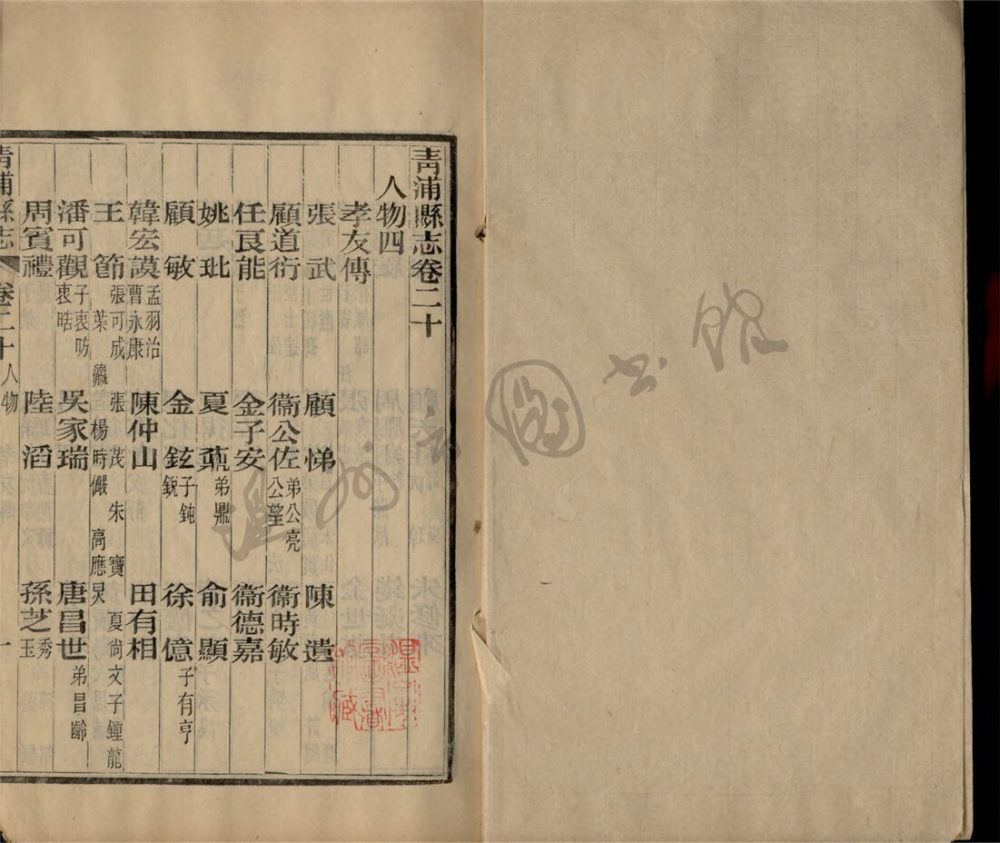 青浦縣志卷二十
人物四
孝友傳
張武 顧悌 陳遺
顧道衍 衞公佐 弟公亮 公望 衞時敏
任良能 金子安 衞德嘉
姚玭 夏鼐 弟鼎 俞顯
顧敏 金鉉 子鈍 銳 徐億 子有亨
韓宏謨 孟羽治 曹永康 陳仲山 田有相
王節 張可成 張茂 朱寶 夏尚文子鍾龍 葉 楊時儼 高應炅
潘可觀 子衷昉 衷晤 吳家瑞 唐昌世 弟昌齡
周賓禮 陸滔 孫芝 秀 玉
青浦縣志 卷二十 人物 一
溫州 圖書館
藏